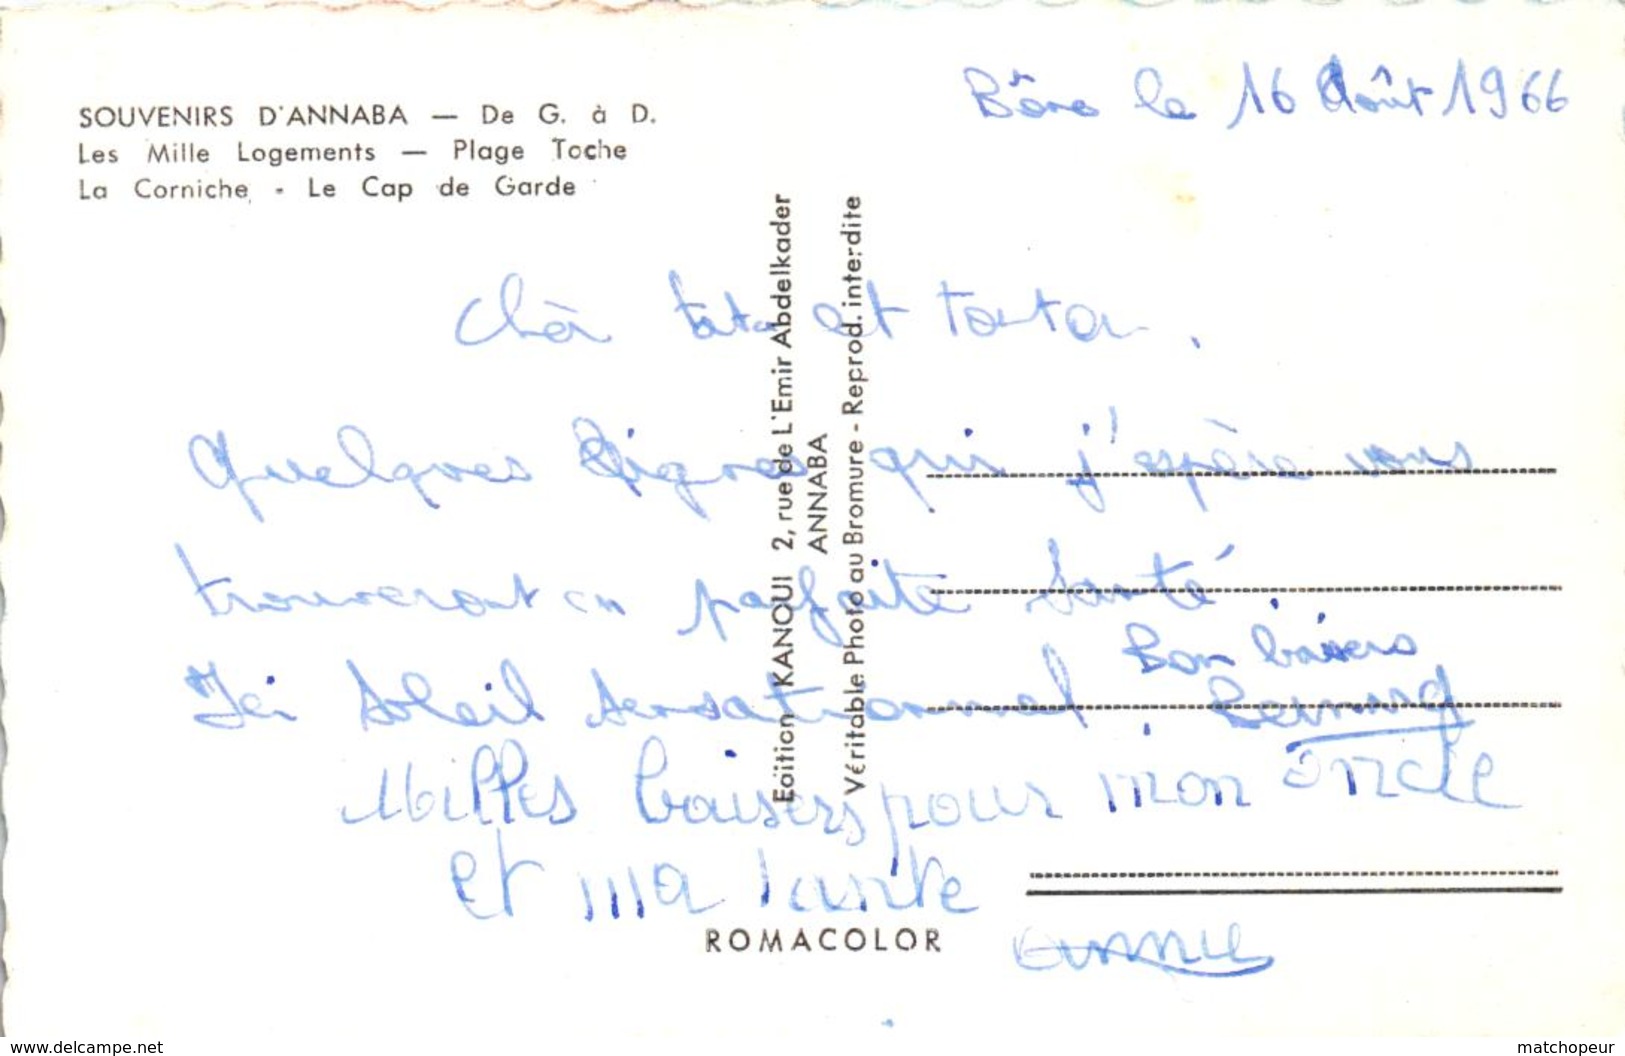 Bône le 16 Août 1966
SOUVENIRS D'ANNABA — De G. à D.
Les Mille Logements — Plage Toche
La Corniche - Le Cap de Garde
Edition KANOUI 2, rue de L'Emir Abdelkader
ANNABA
Véritable Photo au Bromure - Reprod. interdite
Chèr tata et tonton.
Quelques lignes qui j'espère vous
trouveront en parfaite santé
Ici Soleil sensationnel.
Bon baisers
Milles baisers pour mon oncle
et ma tante
ROMACOLOR
www.delcampe.net
matchopeur